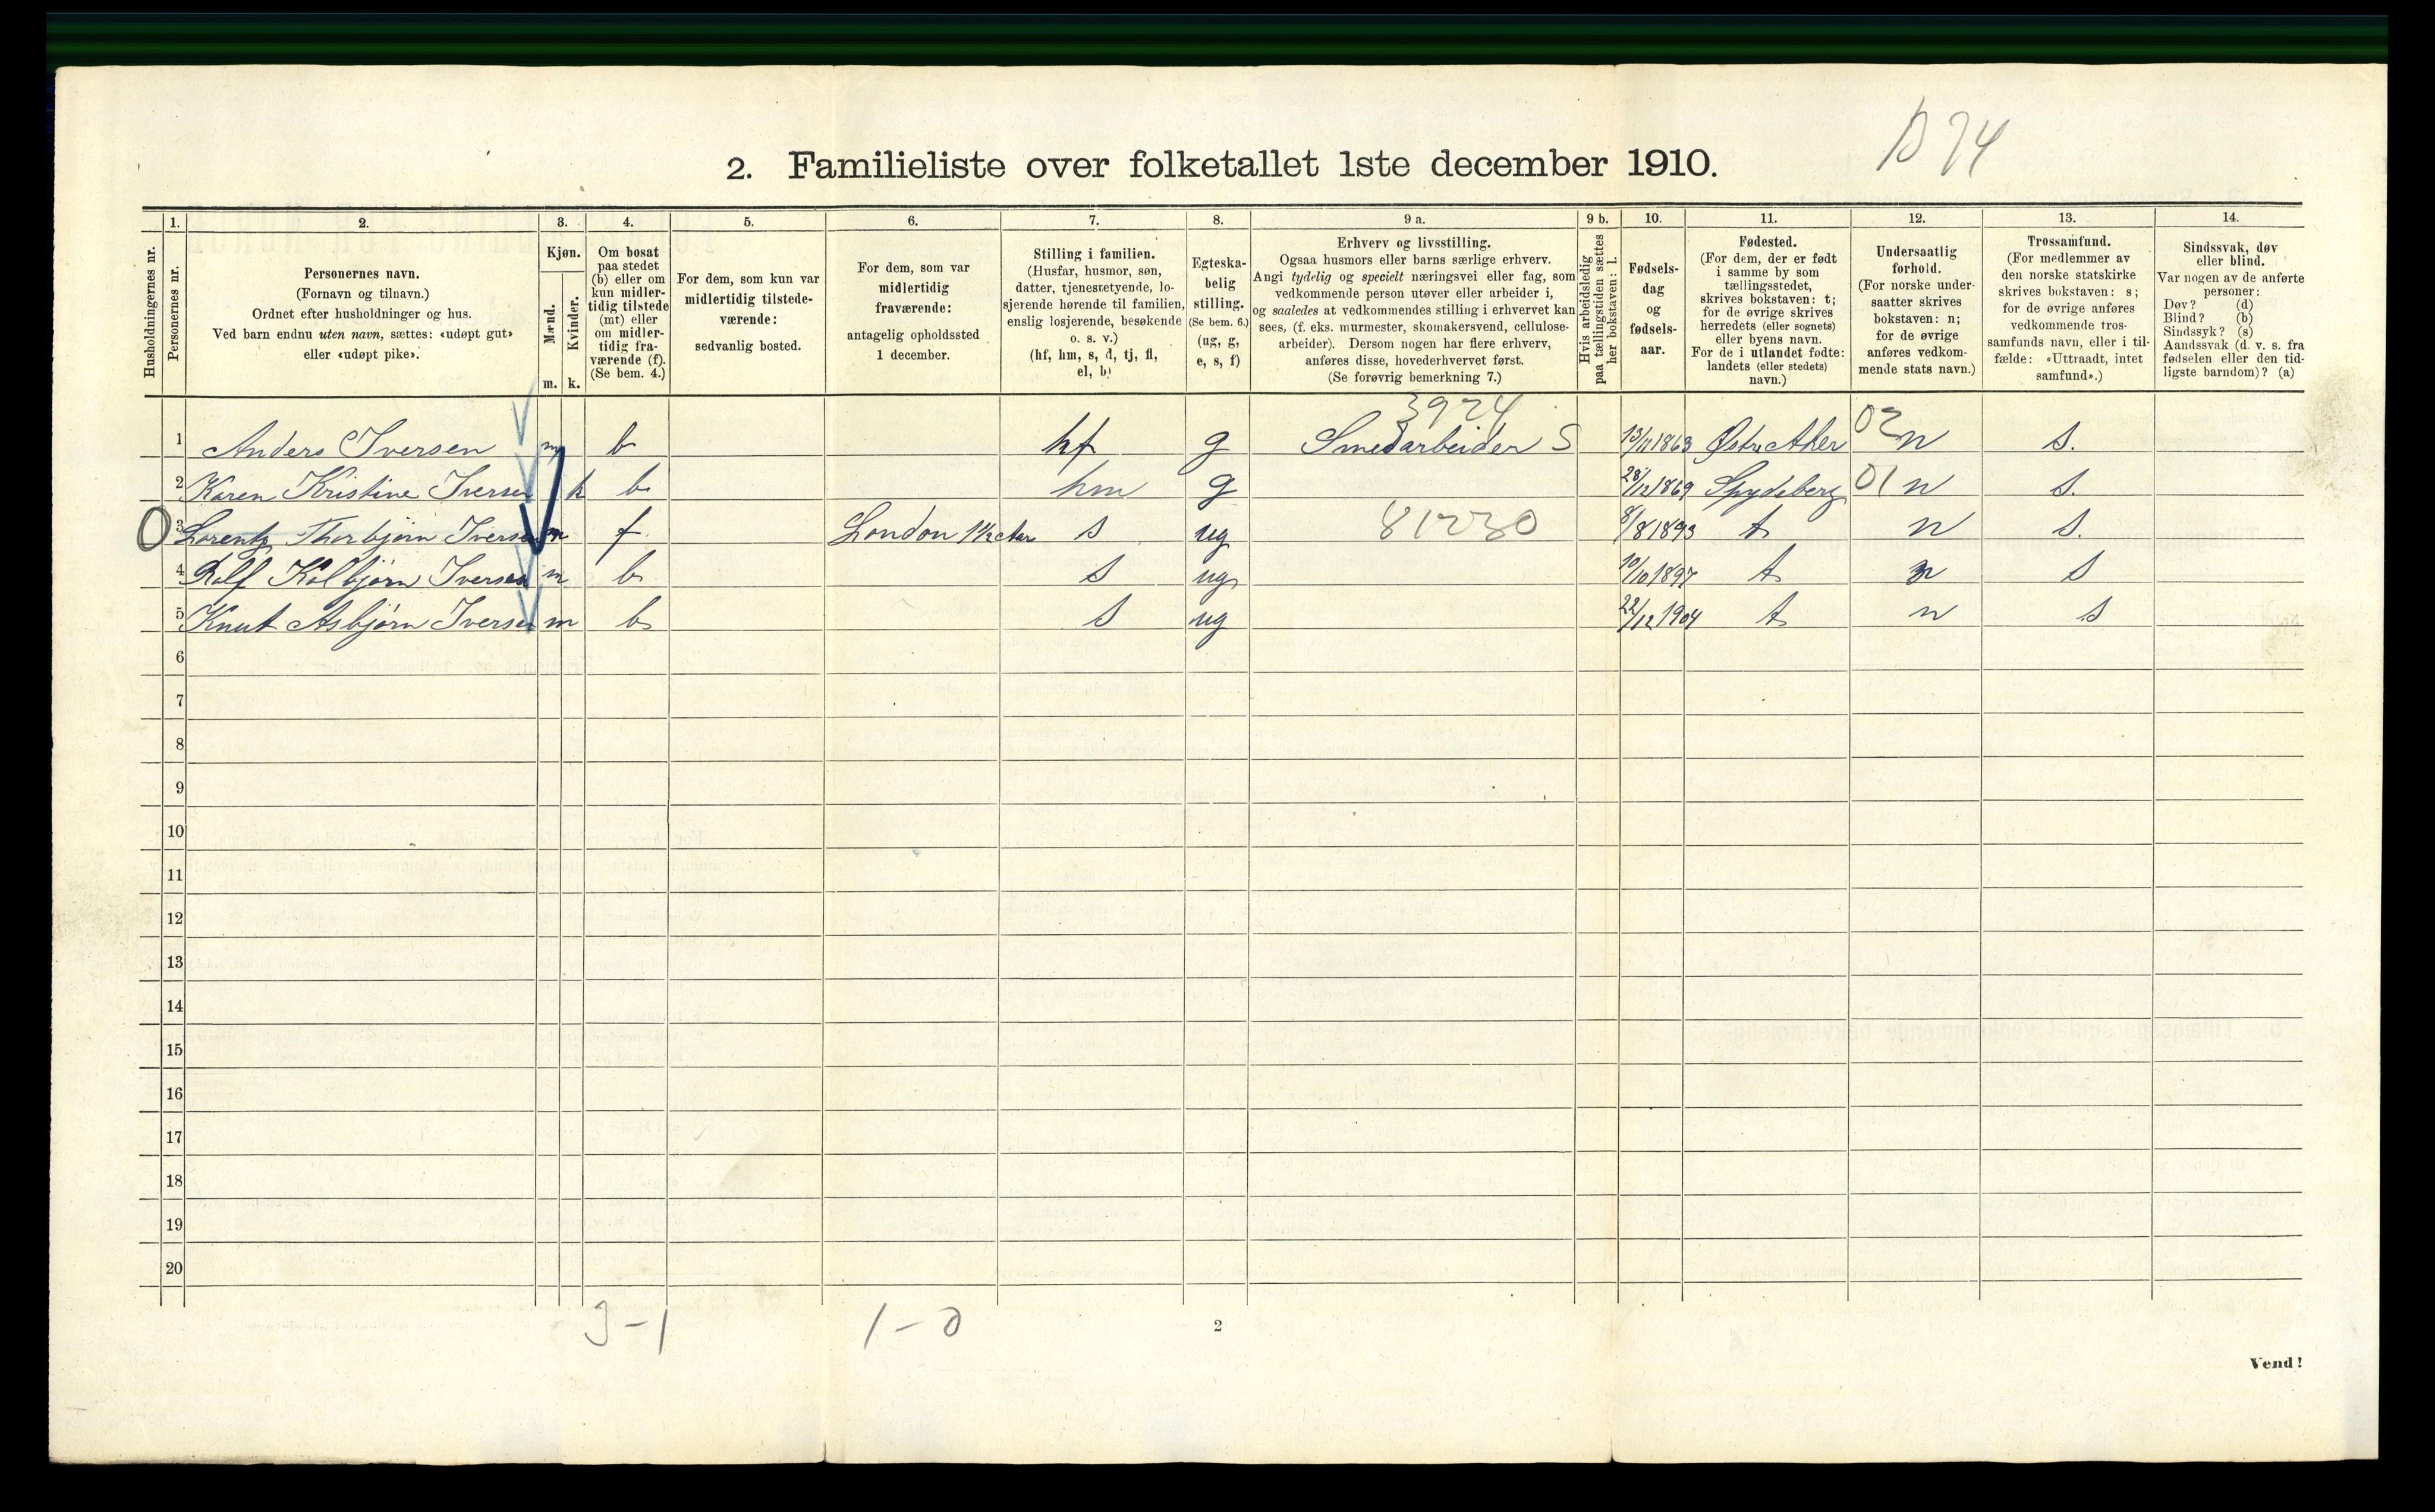 D 74
2. Familieliste over folketallet 1ste december 1910.
Husholdningernes nr.
1. Personernes nr.
2. Personernes navn.
(Fornavn og tilnavn.)
Ordnet efter husholdninger og hus.
Ved barn endnu uten navn, sættes: «udøpt gut»
eller «udøpt pike».
3. Kjøn.
Mænd. m.
Kvinder. k.
4. Om bosat
paa stedet
(b) eller om
kun midler-
tidig tilstede
(mt) eller
om midler-
tidig fra-
værende (f).
(Se bem. 4.)
5. For dem, som kun var
midlertidig tilstede-
værende:
sedvanlig bosted.
6. For dem, som var
midlertidig
fraværende:
antagelig opholdssted
1 december.
7. Stilling i familien.
(Husfar, husmor, søn,
datter, tjenestetyende, lo-
sjerende hørende til familien,
enslig losjerende, besøkende
o. s. v.)
(hf, hm, s, d, tj, fl,
el, b)
8. Egteska-
belig
stilling.
(Se bem. 6.)
(ug, g,
e, s, f)
9 a. Erhverv og livsstilling.
Ogsaa husmors eller barns særlige erhverv.
Angi tydelig og specielt næringsvei eller fag, som
vedkommende person utøver eller arbeider i,
og saaledes at vedkommendes stilling i erhvervet kan
sees, (f. eks. murmester, skomakersvend, cellulose-
arbeider). Dersom nogen har flere erhverv,
anføres disse, hovederhvervet først.
(Se forøvrig bemerkning 7.)
9 b. Hvis arbeidsledig
paa tællingstiden sættes
her bokstaven: l.
10. Fødsels-
dag
og
fødsels-
aar.
11. Fødested.
(For dem, der er født
i samme by som
tællingsstedet,
skrives bokstaven: t;
for de øvrige skrives
herredets (eller sognets)
eller byens navn.
For de i utlandet fødte:
landets (eller stedets)
navn.)
12. Undersaatlig
forhold.
(For norske under-
saatter skrives
bokstaven: n;
for de øvrige
anføres vedkom-
mende stats navn.)
13. Trossamfund.
(For medlemmer av
den norske statskirke
skrives bokstaven: s;
for de øvrige anføres
vedkommende tros-
samfunds navn, eller i til-
fælde: «Uttraadt, intet
samfund».)
14. Sindssvak, døv
eller blind.
Var nogen av de anførte
personer:
Døv? (d)
Blind? (b)
Sindssyk? (s)
Aandssvak (d. v. s. fra
fødselen eller den tid-
ligste barndom)? (a)
3924
1 Anders Iversen m b hf g Smedarbeider S 13/11 1863 Østre Aker 02 n s.
2 Karen Kristine Iversen k b hm g 28/12 1869 Spydeberg 01 n s.
0 3 Lorentz Thorbjørn Iversen m f London 1½ Aar s ug 81230 8/8 1893 t n s.
4 Rolf Kolbjørn Iversen m b s ug 10/10 1897 t n s
5 Knut Asbjørn Iversen m b s ug 22/12 1904 t n s
6
7
8
9
10
11
12
13
14
15
16
17
18
19
20
3-1 1-0
2
Vend!